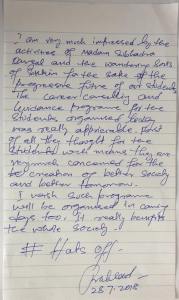 I am very much impressed by the
activities of Madam Subhadra
and the wonderful
of for the sake of the
progressive future of our students.
The career counselling and
Guidance programe for the
students organised today
was really appreciable. First
of all they thought for the
students which means they are
very much concerned for the
creation of better society
and better tomorrow.
I wish such programe
will be organised in coming
days too. It really benefits
the whole society.
# Hats off -
28.7.2018